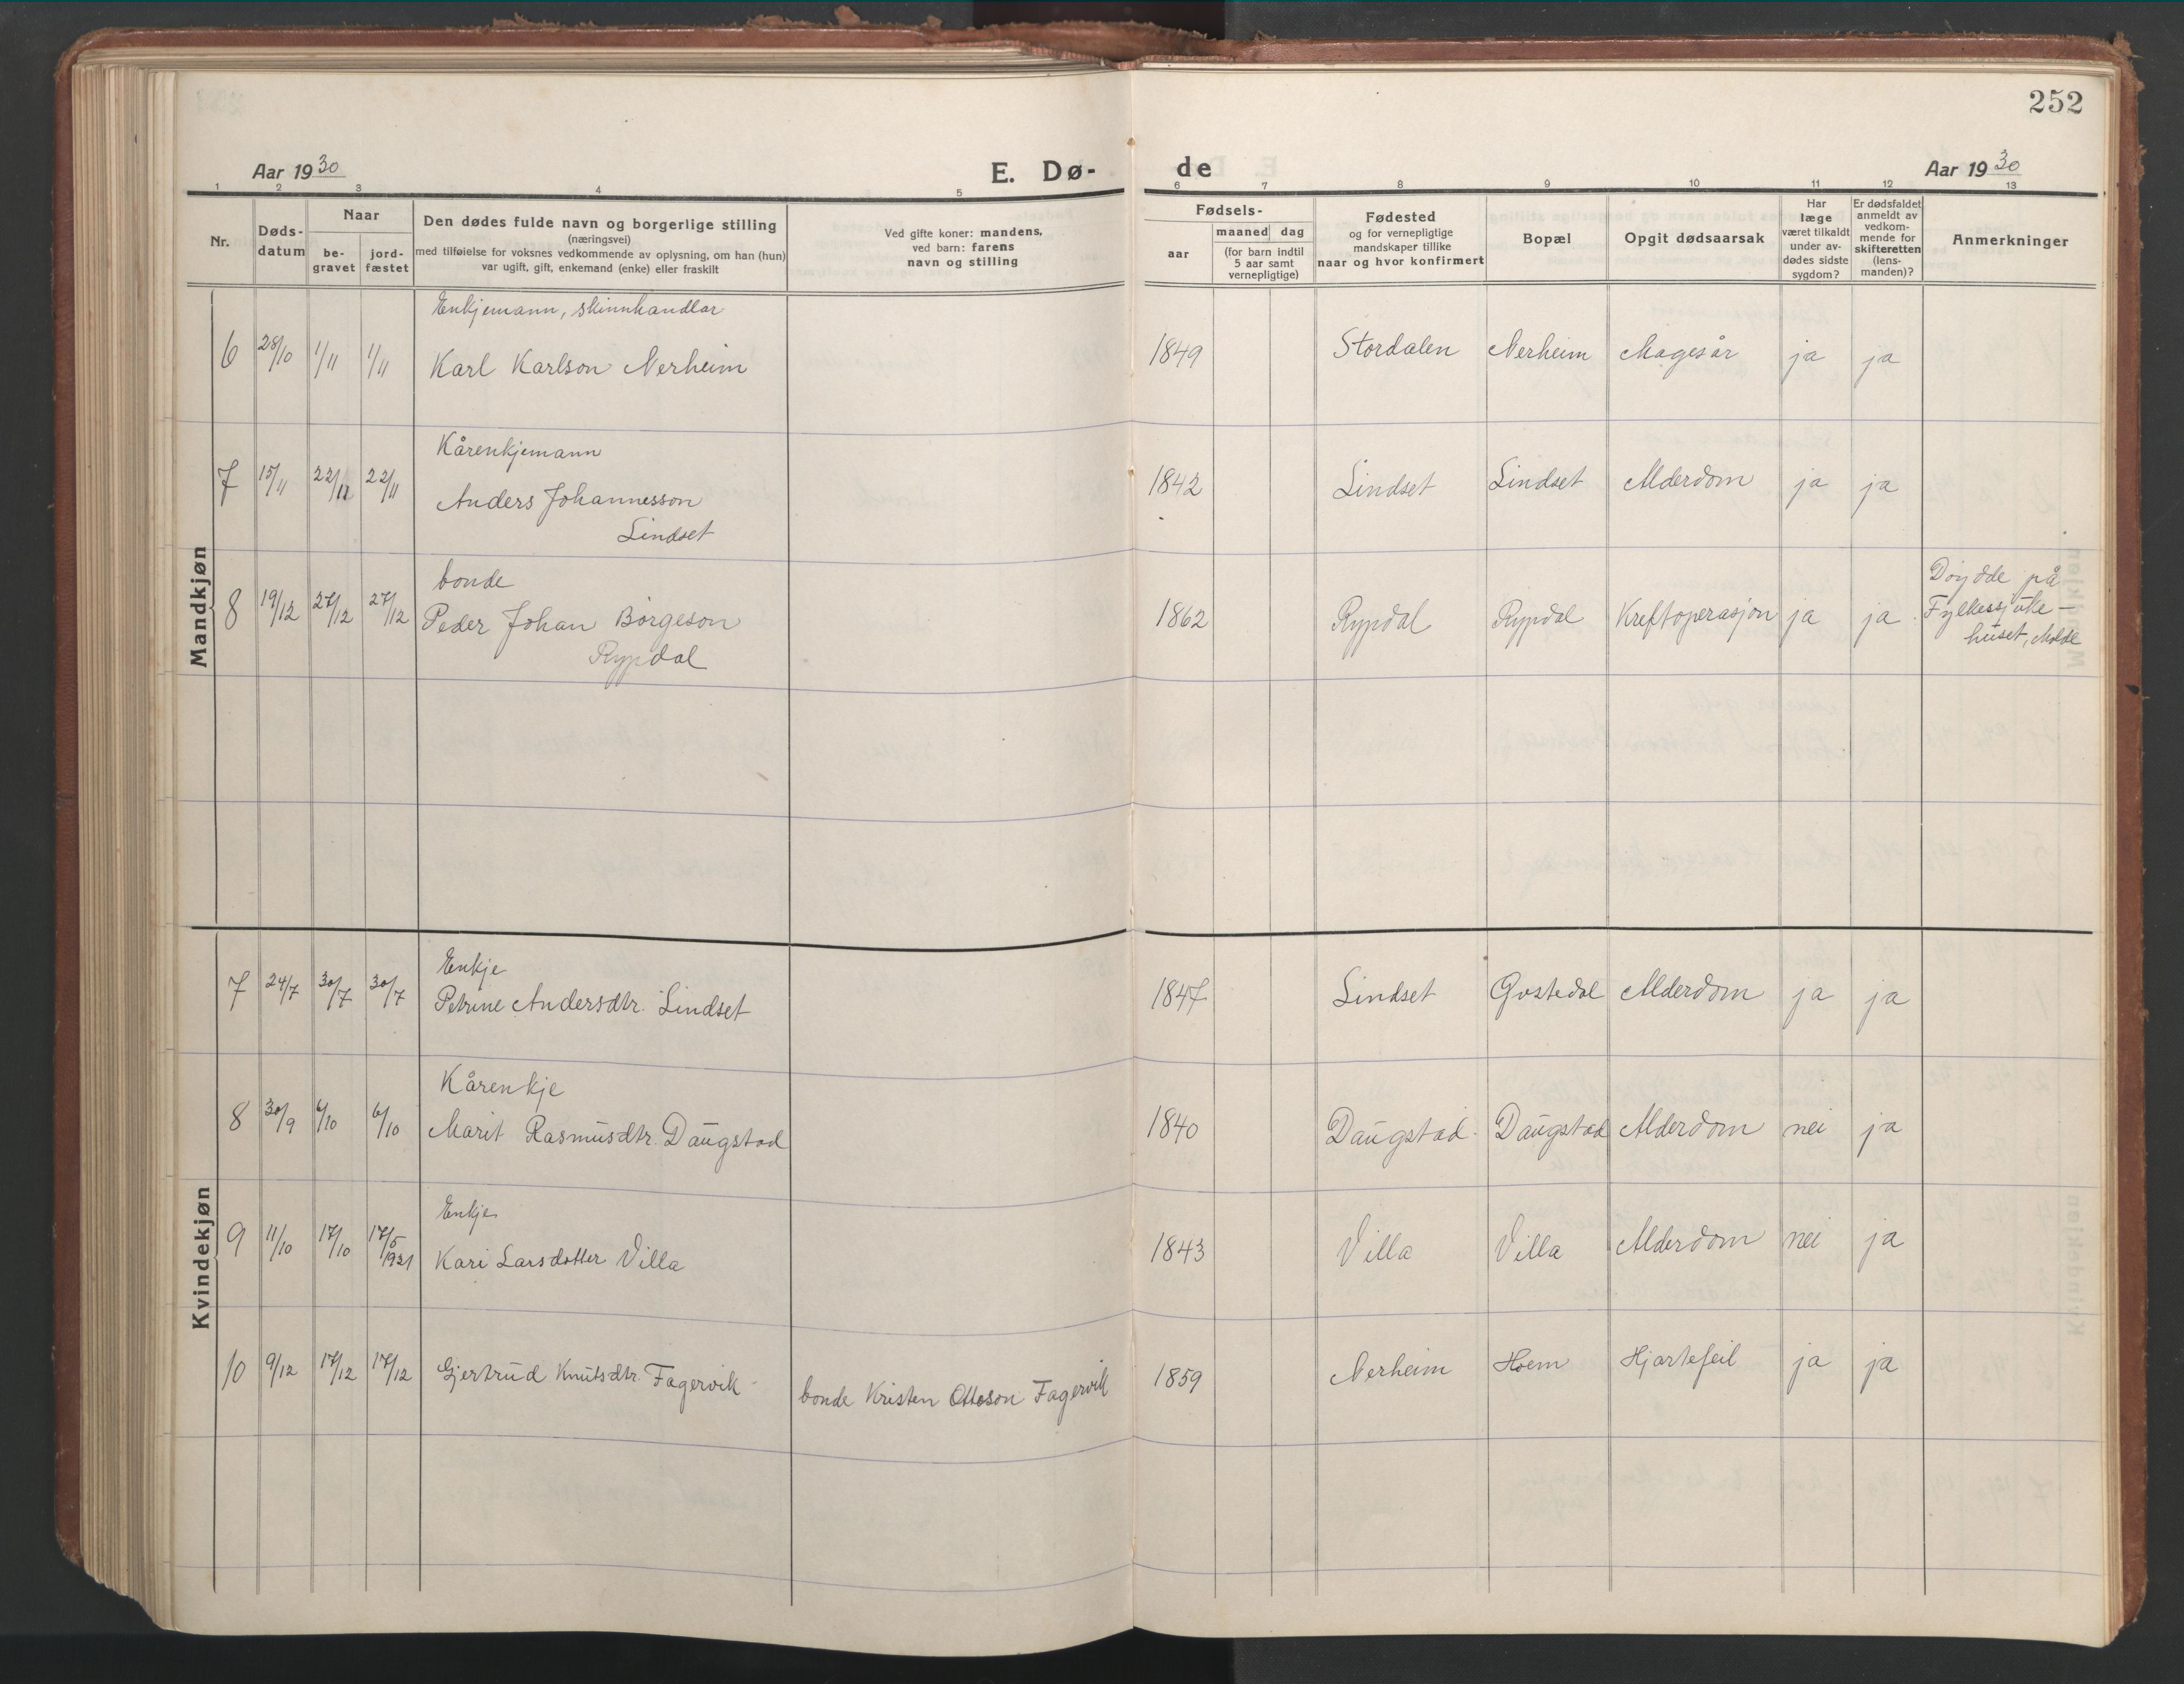 252
Aar 1930
E. Dø-
de
Aar 1930
1 2 3 4 5 6 7 8 9 10 11 12 13
Nr.
Døds-
datum
Naar
be-
gravet
jord-
fæstet
Den dødes fulde navn og borgerlige stilling
(næringsvei)
med tilføielse for voksnes vedkommende av oplysning, om han (hun)
var ugift, gift, enkemand (enke) eller fraskilt
Ved gifte koner: mandens,
ved barn: farens
navn og stilling
Fødsels-
aar
maaned dag
(for barn indtil
5 aar samt
vernepligtige)
Fødested
og for vernepligtige
mandskaper tillike
naar og hvor konfirmert
Bopæl
Opgit dødsaarsak
Har
læge
været tilkaldt
under av-
dødes sidste
sygdom?
Er dødsfaldet
anmeldt av
vedkom-
mende for
skifteretten
(lens-
manden)?
Anmerkninger
Mandkjøn
Enkjemann, skinnhandlar
6 28/10 1/11 1/11 Karl Karlson Nerheim 1849 Stordalen Nerheim Magesår ja ja
Kårenkjemann
7 15/11 22/11 22/11 Anders Johannesson 1842 Lindset Lindset Alderdom ja ja
Lindset
bonde
8 19/12 27/12 27/12 Peder Johan Börgeson 1862 Rypdal Rypdal Kreftoperasjon ja ja
Rypdal
Döydde på
Fylkessjuke-
huset, Molde
Kvindekjøn
Enkje
7 24/7 30/7 30/7 Petrine Andersdtr. Lindset 1847 Lindset Gostedal Alderdom ja ja
Kårenkje
8 30/9 6/10 6/10 Marit Rasmusdtr. Daugstad 1840 Daugstad Daugstad Alderdom nei ja
Enkje
9 11/10 17/10 17/5 1931 Kari Larsdotter Villa 1843 Villa Villa Alderdom nei ja
10 9/12 17/12 17/12 Gjertrud Knutsdtr. Fagervik bonde Kristen Ottoson Fagervik 1859 Nerheim Hoem Hjartefeil ja ja